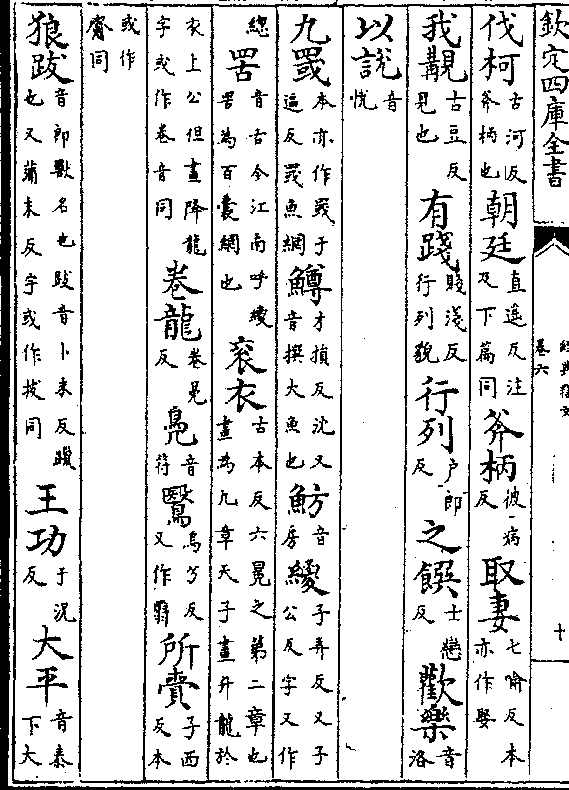 欽定四庫全書
經典釋文
卷六
十
伐柯古河反斧柄也朝廷直遥反注及下篇同斧柄彼病反取妻七喻反本亦作娶
我覯古豆反見也有踐賤淺反行列貌行列户郎反之饌士戀反歡樂音洛
以說音悅
九罭本亦作罭于逼反罭魚網鱒才損反沈又音撰大魚也魴音房緵子弄反又子公反字又作
總罟音古今江南呼緵罟為百囊網也衮衣古本反六冕之第二章也畫為九章天子畫升龍於
衣上公但畫降龍字或作卷音同卷龍卷冕反鳧音符鷖烏兮反又作鷖所賫子西反本
或作齎同
狼跋音郎獸名也跋音卜末反躐也又蒲末反字或作拔同王功于況反大平音泰下大